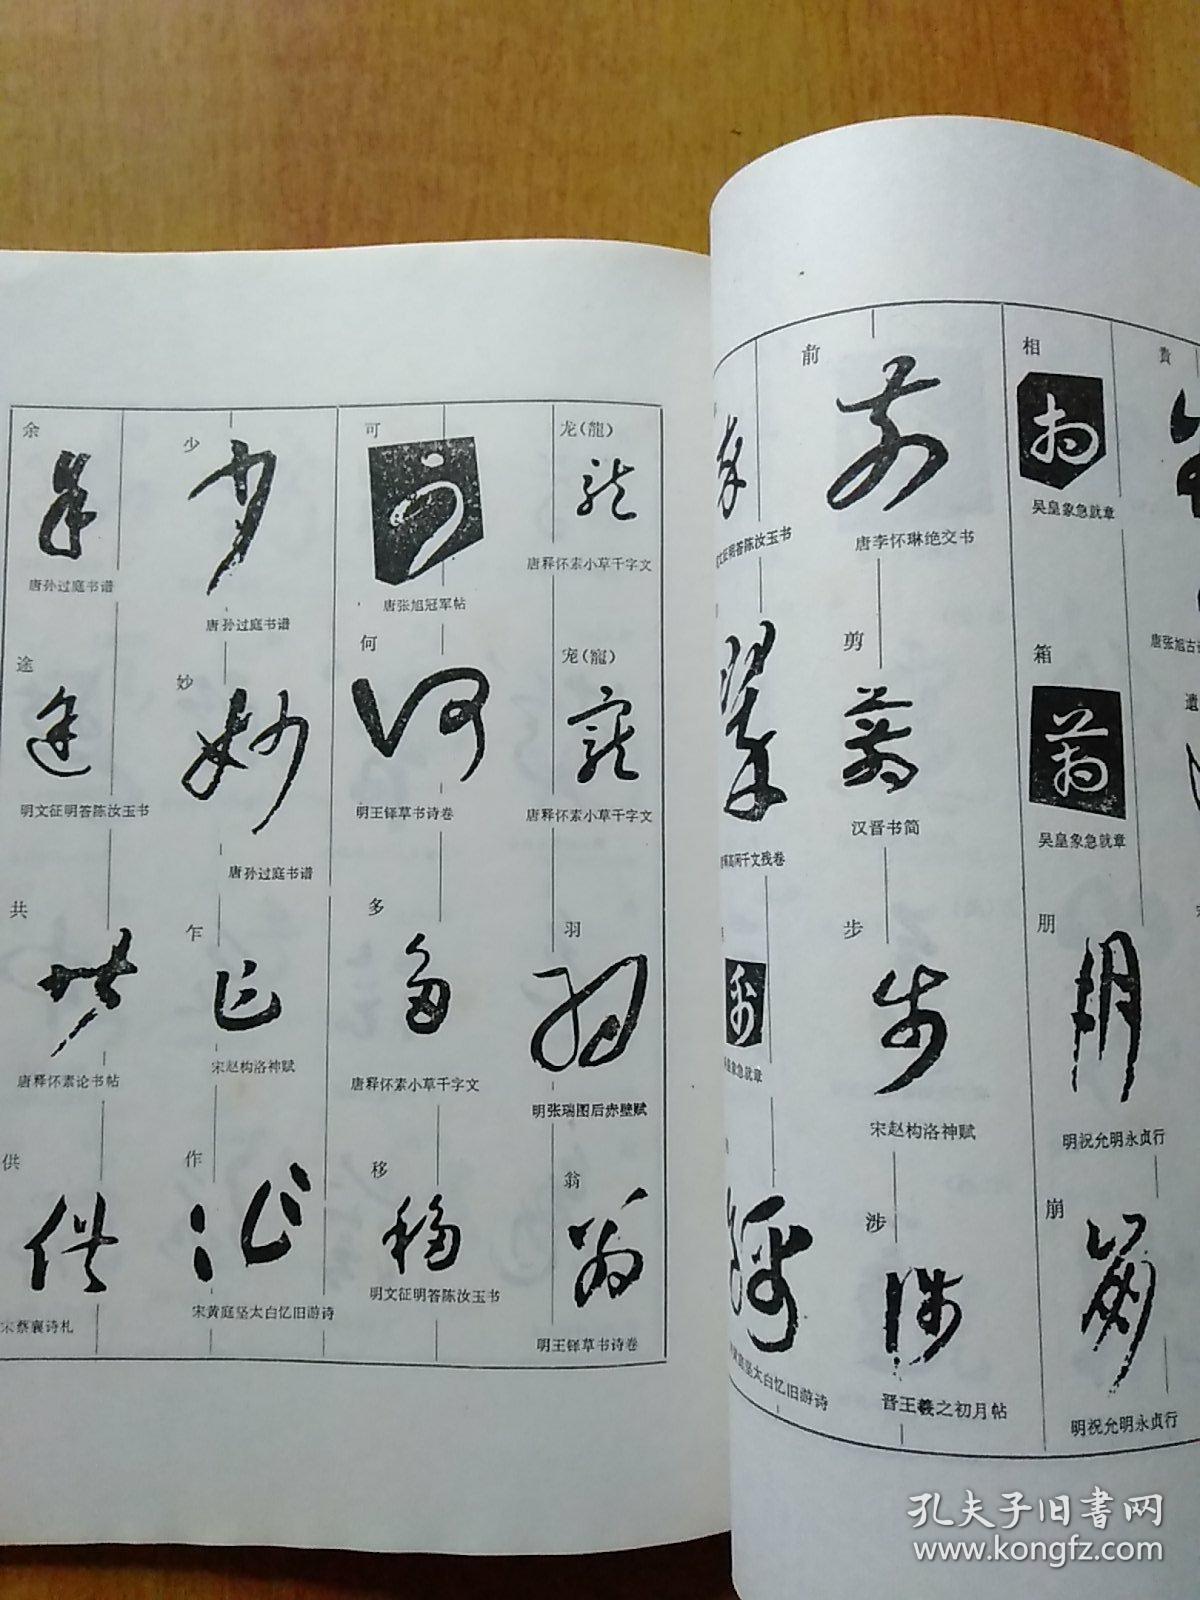 余
唐孙过庭书谱
途
明文征明答陈汝玉书
共
唐释怀素论书帖
供
宋蔡襄诗札
少
唐孙过庭书谱
妙
唐孙过庭书谱
乍
宋赵构洛神赋
作
宋黄庭坚太白忆旧游诗
可
唐张旭冠军帖
何
明王铎草书诗卷
多
唐释怀素小草千字文
移
明文征明答陈汝玉书
龙(龍)
唐释怀素小草千字文
宠(寵)
唐释怀素小草千字文
羽
明张瑞图后赤壁赋
翁
明王铎草书诗卷
文征明答陈汝玉书
高闲千文残卷
皇象急就章
黄庭坚太白忆旧游诗
前
唐李怀琳绝交书
剪
汉晋书简
步
宋赵构洛神赋
涉
晋王羲之初月帖
相
吴皇象急就章
箱
吴皇象急就章
朋
明祝允明永贞行
崩
明祝允明永贞行
貴
唐张旭古
遺
孔夫子旧书网
www.kongfz.com